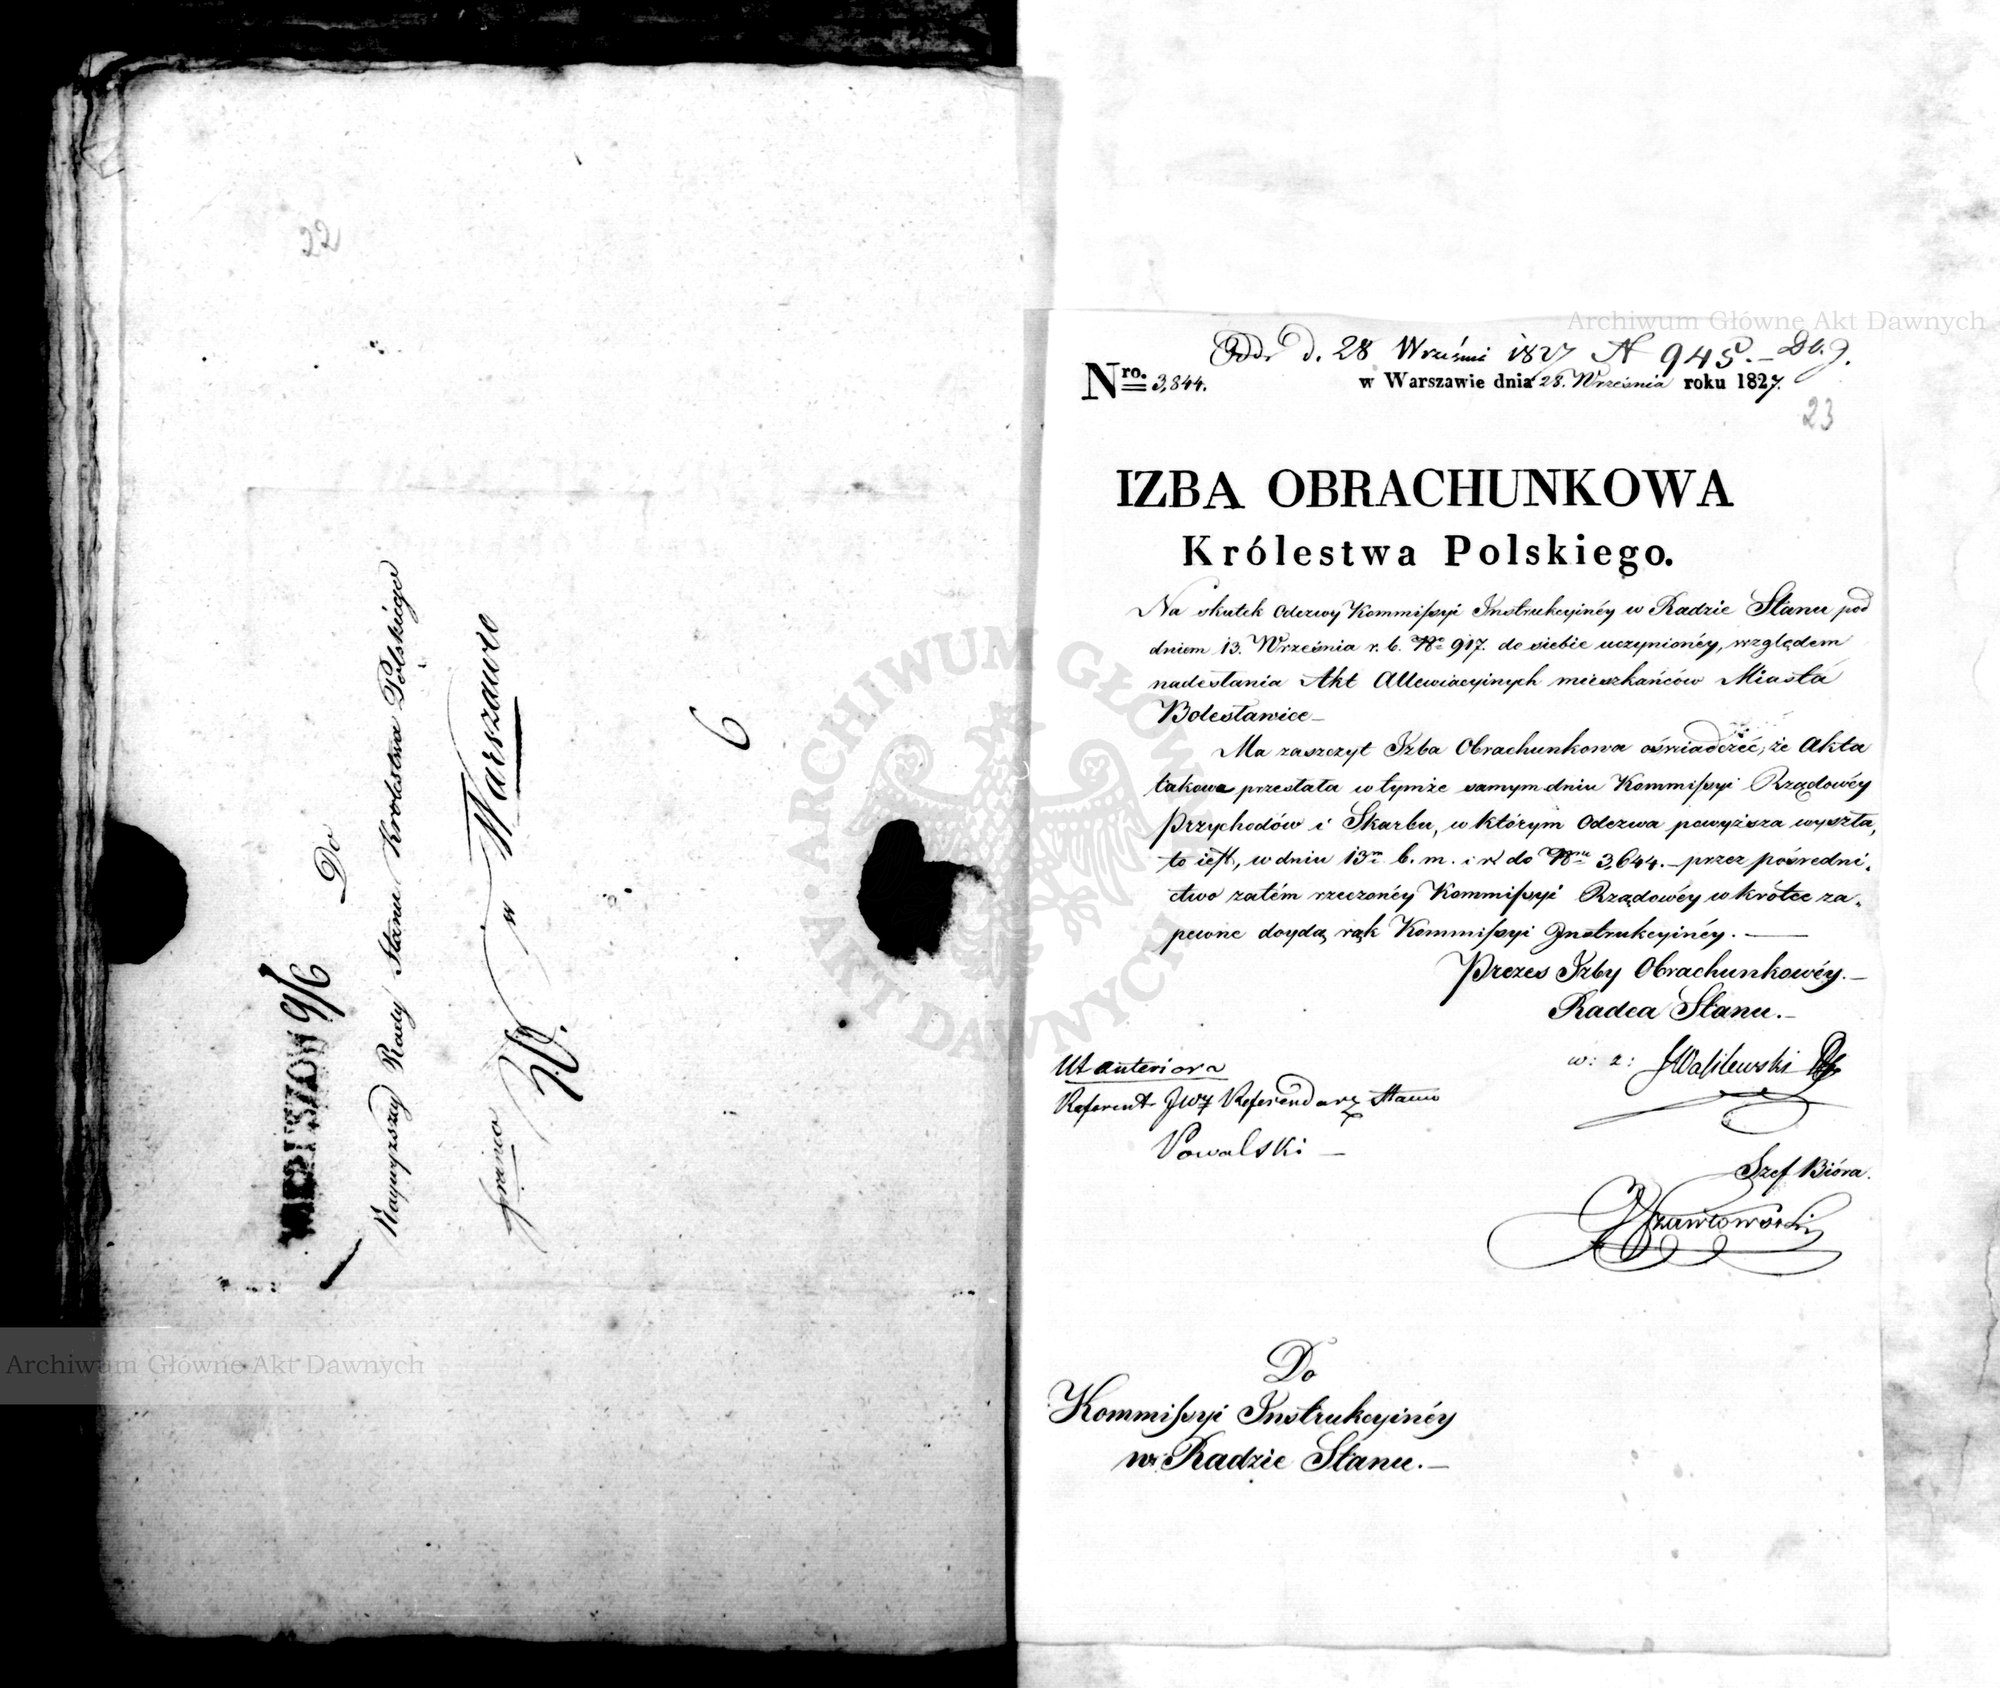 22
WIERUSZOW 9/6
Do
Naywyzszey Rady Stanu Krolestwa Polskiego
w Warszawie
franco
6
Archiwum Główne Akt Dawnych
ARCHIWUM GŁÓWNE AKT DAWNYCH
Archiwum Główne Akt Dawnych
d. 28 Wrześnie 1827 N 945.
Nro. 3,844. w Warszawie dnia 28. Września roku 1827.
23
IZBA OBRACHUNKOWA
Królestwa Polskiego.
Na skutek Odezwy Kommissyi Instrukcyinéy w Radzie Stanu pod
dniem 13. Września r. b. No 917. do siebie uczynionéy, względem
nadesłania Akt Allewiacyinych mieszkańców Miasta
Bolesławice
Ma zaszczyt Izba Obrachunkowa oświadczéć, że Akta
takowe przesłała w tymże samym dniu Kommissyi Rządowéy
Przychodów i Skarbu, w którym Odezwa powyższa wyszła,
to iest, w dniu 13m b. m. i r. do Nru 3,644. – przez pośredni-
ctwo zatém rzeczonéy Kommissyi Rządowéy w krótce za-
pewne doydą rąk Kommissyi Instrukcyinéy. —
Prezes Izby Obrachunkowéy. –
Radca Stanu. –
w: z: Wasilewski
Ut anteriora
Referent JWJ Referendarz Stanu
Kowalski –
Szef Bióra.
Do
Kommissyi Instrukcyinéy
w Radzie Stanu. –